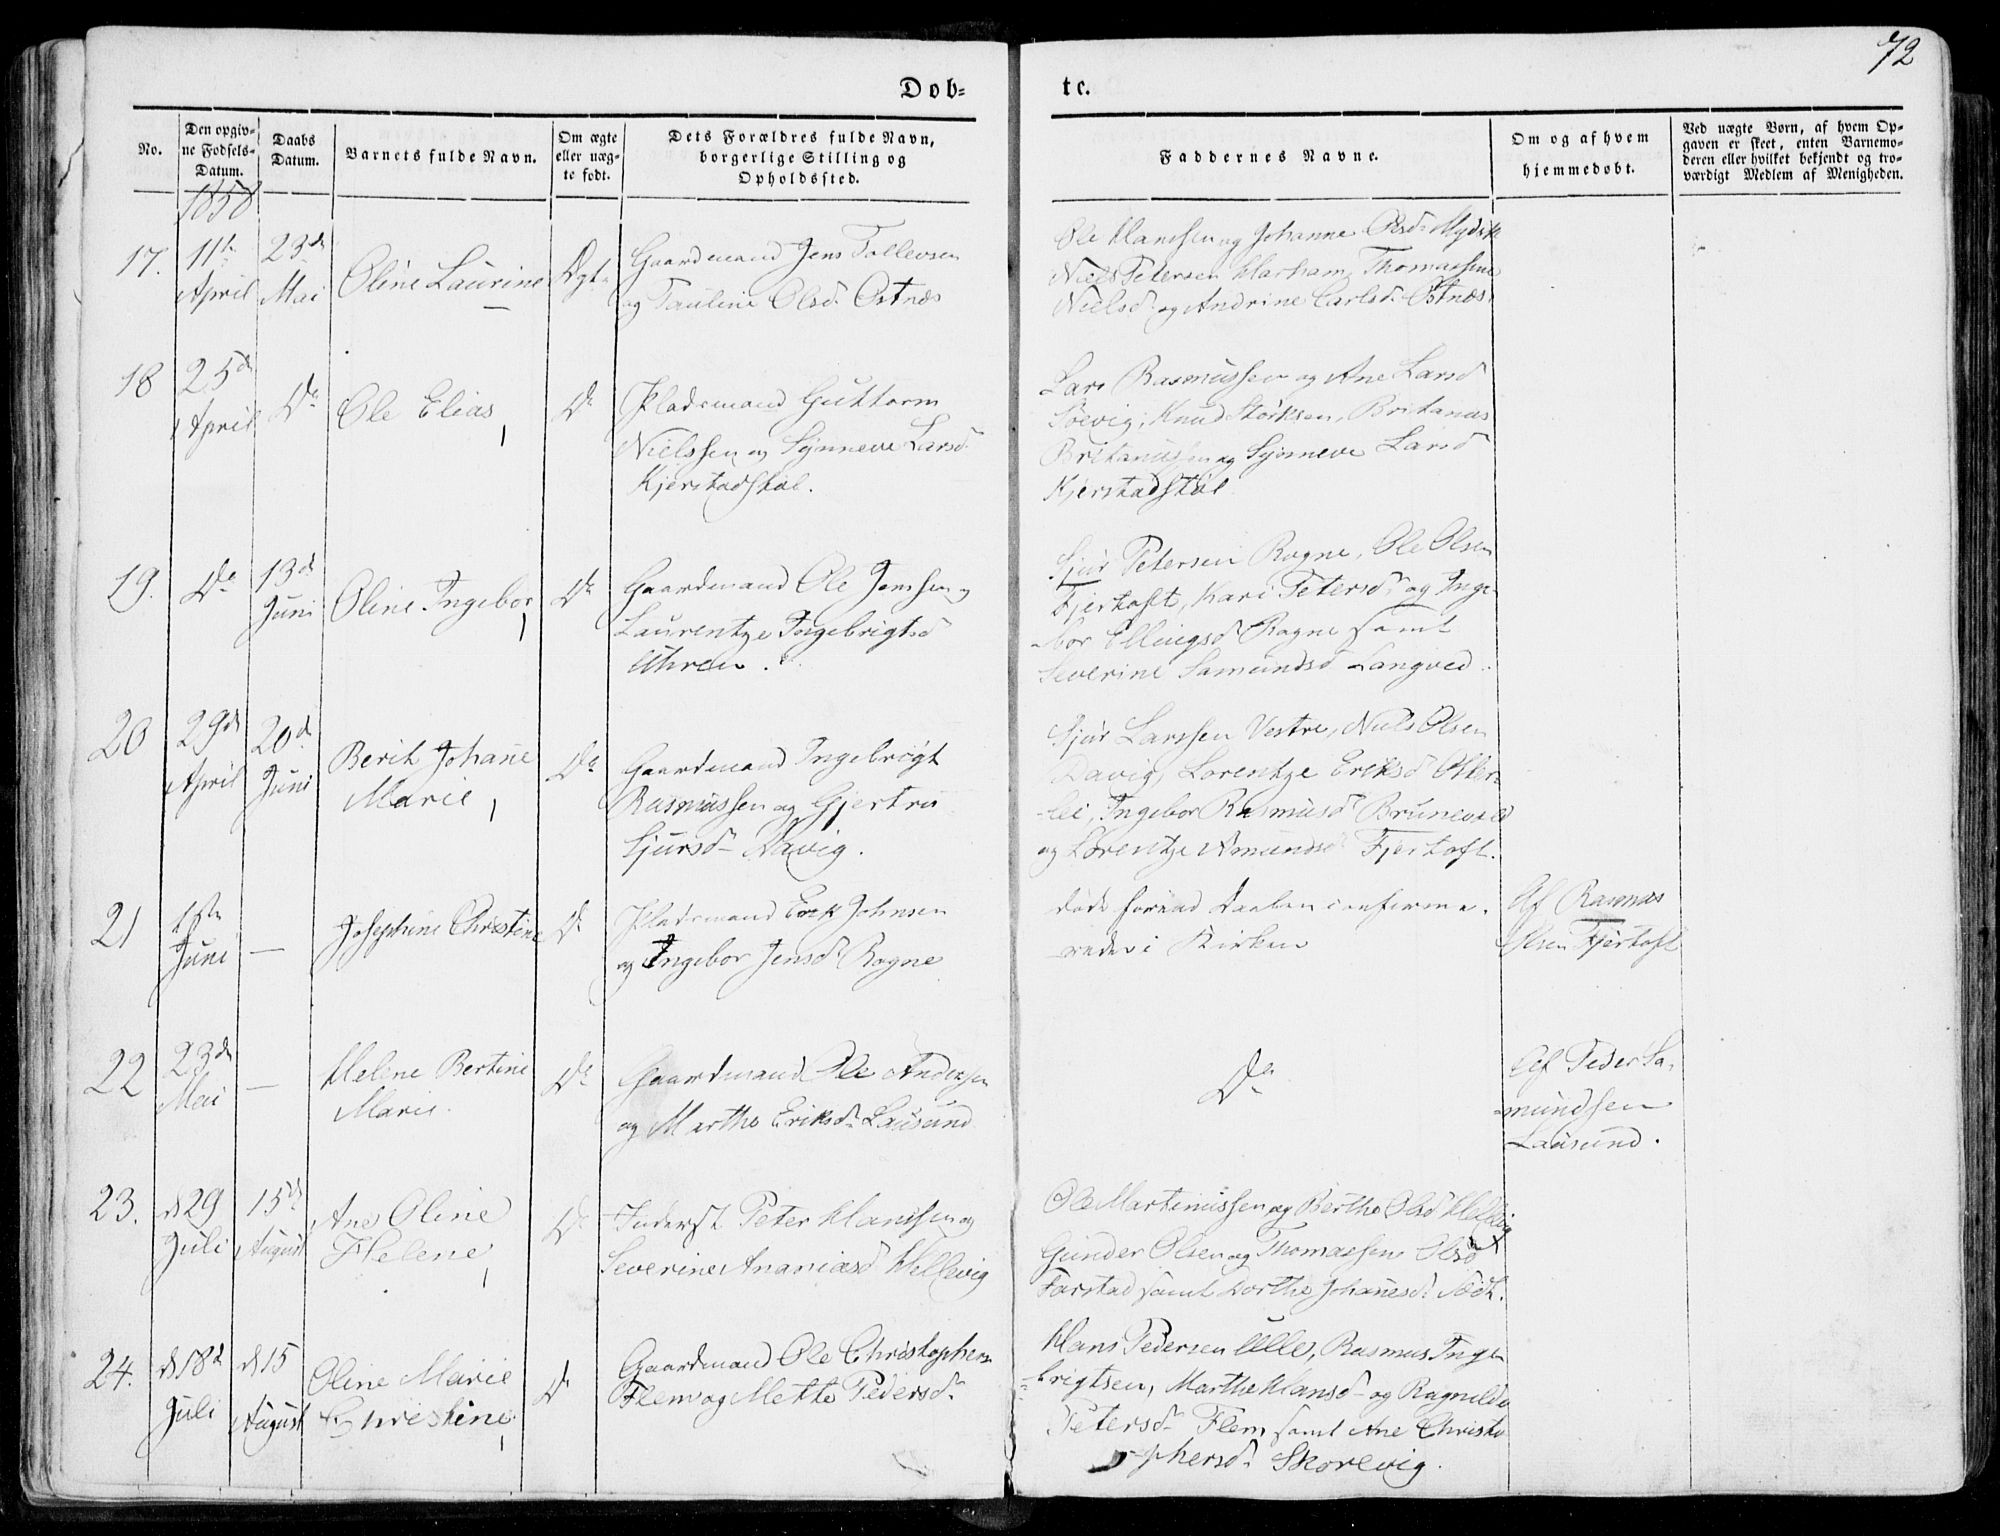 72
Døb-
te.
No.
Den opgiv-
ne Fødsels-
Datum.
Daabs
Datum.
Barnets fulde Navn.
Om ægte
eller uæg-
te født.
Dets Forældres fulde Navn,
borgerlige Stilling og
Opholdssted.
Faddernes Navne.
Om og af hvem
hjemmedøbt.
Ved uægte Børn, af hvem Op-
gaven er skeet, enten Barnemo-
deren eller hvilket bekjendt og tro-
værdigt Medlem af Menigheden.
1858
17.
11te
April
23de
Mai
Oline Laurine
Ægte
Gaardmand Jens Tollevsen
og Pauline Olsd. Østnæs
Ole Hanssen og Johanne Olsd.
Niels Petersen Harham, Thomassine
Nielsd. og Andrine Carlsd. Østnæs
18
25de
April
Do
Ole Elias
Do
Pladsmand Guttorm
Nielssen og Synneve Larsd
Kjerstadstøl.
Lars Rasmussen og Ane Larsd
Søevig, Knud Størksen, Britanus
Britanussen og Synneve Larsd
Kjerstadstøl
19.
Do
13de
Juni
Oline Ingebor
Do
Gaardmand Ole Jenssen og
Laurentze Ingebrigtsd
Uhren.
Sjur Petersen Rogne, Ole Olsen
Fjertoft, Kari Petersd. og Inge-
bor Ellingsd Rogne samt
Severine Samundsd Longved
20
29de
April
20de
Juni
Berit Johane
Marie
Do
Gaardmand Ingebrigt
Rasmussen og Gjertru
Sjursd Davig.
Sjur Larssen Vestre, Niels Olsen
Davig, Lorentze Eriksd Otter-
lei, Ingebor Rasmusd Brunevold
og Lorentze Amundsd Fjertoft.
21
1ste
Juni
—
Josephine Christine
Do
Pladsmand Erik Johnsen
og Ingebor Jensd. Rogne
døde forend Daaben confirme-
redes i Kirken
Af Rasmus
Olsen Fjertoft
22
23de
Mai
—
Helene Bertine
Marie.
Do
Gaardmand Ole Andersen
og Marthe Eriksd. Lausund
Do
Af Peder Sa-
mundsen
Lausund.
23.
d 29
Juli
15de
August
Ane Oline
Helene
Do
Inderst Peter Hanssen og
Severine Ananiasd Hellevig
Ole Martinussen og Berthe Olsd Hellevig
Gunder Olsen og Thomassine Olsd
Farstad samt Dorthe Johanesd.
24.
d 18d
Juli
d 15
August
Oline Marie
Christine
Do
Gaardmand Ole Christophers.
Flem og Mette Pedersd.
Hans Pedersen Ulle, Rasmus Inge-
brigtsen, Marthe Hansd og Ragnilde
Petersd. Flem samt Ane Christo-
phersd. Skorevig.